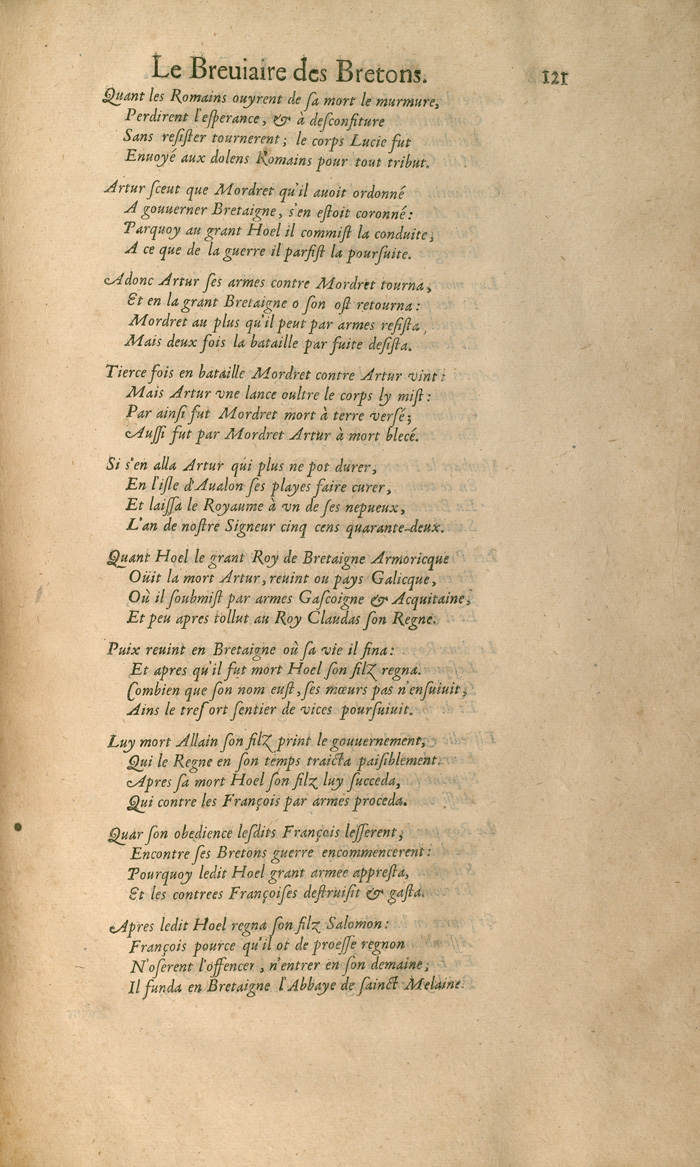 Le Breuiaire des Bretons. 121
Quant les Romains ouyrent de ſa mort le murmure,
Perdirent l'eſperance, & à deſconfiture
Sans reſiſter tournerent; le corps Lucie fut
Enuoyé aux dolens Romains pour tout tribut.
Artur ſceut que Mordret qu'il auoit ordonné
A gouuerner Bretaigne, s'en eſtoit coronné:
Parquoy au grant Hoel il commiſt la conduite,
A ce que de la guerre il parfiſt la pourſuite.
Adonc Artur ſes armes contre Mordret tourna,
Et en la grant Bretaigne o ſon oſt retourna:
Mordret au plus qu'il peut par armes reſiſta,
Mais deux fois la bataille par fuite deſiſta.
Tierce fois en bataille Mordret contre Artur vint:
Mais Artur vne lance oultre le corps ly miſt:
Par ainſi fut Mordret mort à terre verſé;
Auſſi fut par Mordret Artur à mort blecé.
Si s'en alla Artur qui plus ne pot durer,
En l'iſle d'Aualon ſes playes faire curer,
Et laiſſa le Royaume à vn de ſes nepueux,
L'an de noſtre Signeur cinq cens quarante-deux.
Quant Hoel le grant Roy de Bretaigne Armoricque
Oüit la mort Artur, reuint ou pays Galicque,
Où il ſoubmiſt par armes Gaſcoigne & Acquitaine,
Et peu apres tollut au Roy Claudas ſon Regne.
Puix reuint en Bretaigne où ſa vie il fina:
Et apres qu'il fut mort Hoel ſon filz regna.
Combien que ſon nom euſt, ſes mœurs pas n'enſuiuit,
Ains le treſort ſentier de vices pourſuiuit.
Luy mort Allain ſon filz print le gouuernement,
Qui le Regne en ſon temps traicta paiſiblement.
Apres ſa mort Hoel ſon filz luy ſucceda,
Qui contre les François par armes proceda.
Quar ſon obedience leſdits François leſſerent,
Encontre ſes Bretons guerre encommencerent:
Pourquoy ledit Hoel grant armee appreſta,
Et les contrees Françoiſes deſtruiſit & gaſta.
Apres ledit Hoel regna ſon filz Salomon:
François pource qu'il ot de proeſſe regnon
N'oſerent l'offencer, n'entrer en ſon demaine;
Il funda en Bretaigne l'Abbaye de ſainct Melaine.